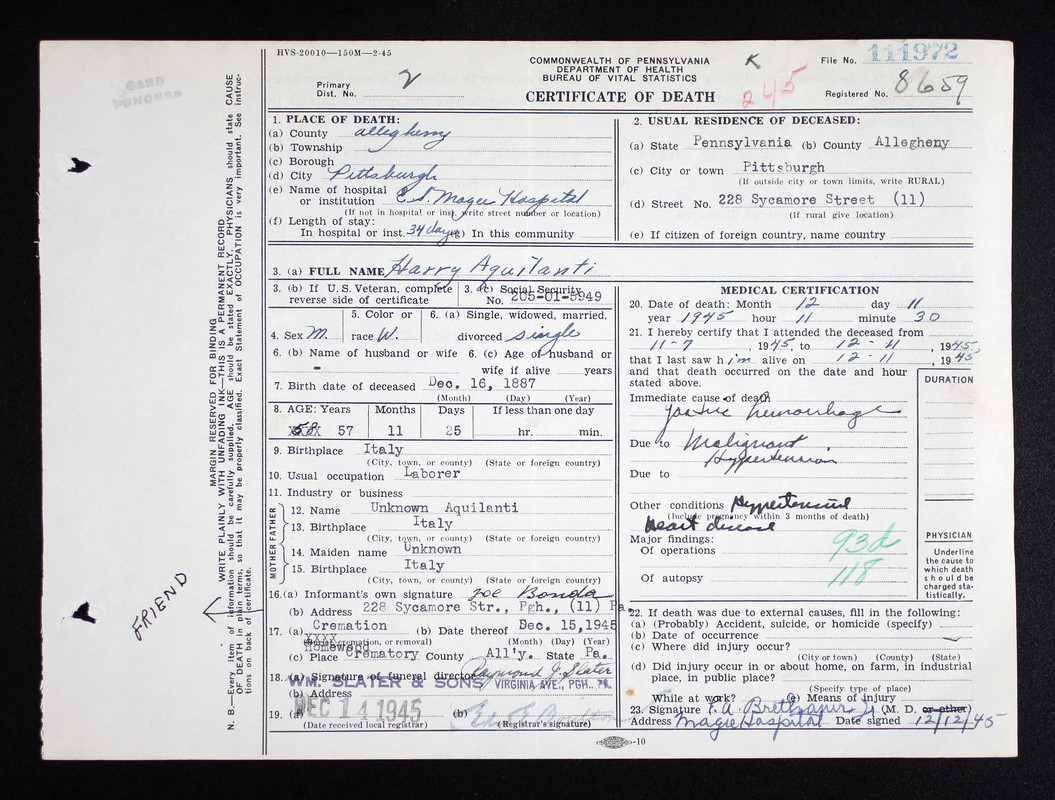 HVS-20010—150M—2-45
COMMONWEALTH OF PENNSYLVANIA
DEPARTMENT OF HEALTH
BUREAU OF VITAL STATISTICS
CERTIFICATE OF DEATH
Primary Dist. No. 2
K
245
File No. 111972
Registered No. 8659
CARD PUNCHED
MARGIN RESERVED FOR BINDING
WRITE PLAINLY WITH UNFADING INK—THIS IS A PERMANENT RECORD
N. B.—Every item of information should be carefully supplied. AGE should be stated EXACTLY. PHYSICIANS should state CAUSE
OF DEATH in plain terms, so that it may be properly classified. Exact Statement of OCCUPATION is very important. See instruc-
tions on back of certificate.
FRIEND
1. PLACE OF DEATH:
(a) County allegheny
(b) Township
(c) Borough
(d) City Pittsburgh
(e) Name of hospital
or institution Magee Hospital
(If not in hospital or inst. write street number or location)
(f) Length of stay:
In hospital or inst. 34 days In this community
2. USUAL RESIDENCE OF DECEASED:
(a) State Pennsylvania (b) County Allegheny
(c) City or town Pittsburgh
(If outside city or town limits, write RURAL)
(d) Street No. 228 Sycamore Street (11)
(If rural give location)
(e) If citizen of foreign country, name country
3. (a) FULL NAME Harry Aquilanti
3. (b) If U.S. Veteran, complete reverse side of certificate
3. (c) Social Security No. 205-01-5949
4. Sex M.
5. Color or race W.
6. (a) Single, widowed, married, divorced single
6. (b) Name of husband or wife -
6. (c) Age of husband or wife if alive years
7. Birth date of deceased Dec. 16, 1887
(Month) (Day) (Year)
8. AGE: Years Months Days If less than one day
57 11 25 hr. min.
9. Birthplace Italy
(City, town, or county) (State or foreign country)
10. Usual occupation Laborer
11. Industry or business
FATHER
12. Name Unknown Aquilanti
13. Birthplace Italy
(City, town, or county) (State or foreign country)
MOTHER
14. Maiden name Unknown
15. Birthplace Italy
(City, town, or county) (State or foreign country)
16.(a) Informant's own signature Joe Bonda
(b) Address 228 Sycamore Str., Pgh., (11) Pa.
17. (a) Cremation (b) Date thereof Dec. 15, 1945
(Burial, cremation, or removal) (Month) (Day) (Year)
XXXX
Homewood
(c) Place Crematory County All'y. State Pa.
18. (a) Signature of funeral director Raymond J. Slater
WM. SLATER & SONS VIRGINIA AVE., PGH.
(b) Address
19. (a) DEC 14 1945 (b)
(Date received local registrar) (Registrar's signature)
MEDICAL CERTIFICATION
20. Date of death: Month 12 day 11
year 1945 hour 11 minute 30
21. I hereby certify that I attended the deceased from
11-7, 1945, to 12-11, 1945,
that I last saw him alive on 12-11, 1945
and that death occurred on the date and hour
stated above.
DURATION
Immediate cause of death
Gastric hemorrhage
Due to Malignant
Hypertension
Due to
Other conditions Hypertensive
(Include pregnancy within 3 months of death)
Heart disease
Major findings:
Of operations 93d
Of autopsy 118
PHYSICIAN
Underline
the cause to
which death
should be
charged sta-
tistically.
22. If death was due to external causes, fill in the following:
(a) (Probably) Accident, suicide, or homicide (specify)
(b) Date of occurrence
(c) Where did injury occur?
(City or town) (County) (State)
(d) Did injury occur in or about home, on farm, in industrial
place, in public place?
(Specify type of place)
While at work? (e) Means of injury
23. Signature (M. D. or other)
Address Magee Hospital Date signed 12/12/45
-10